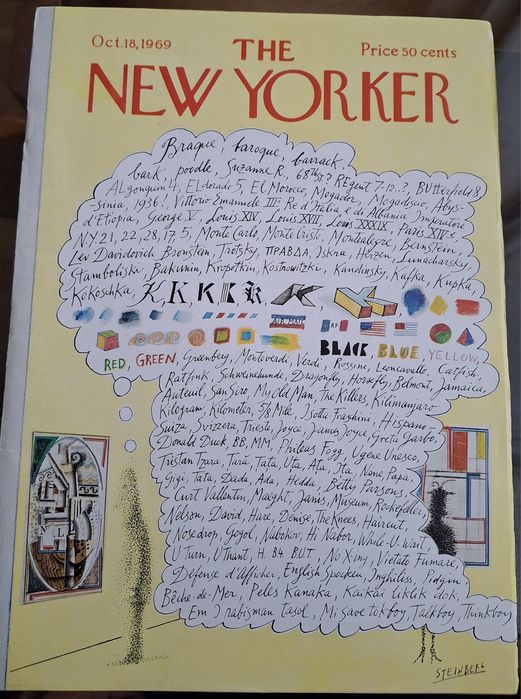 Oct. 18, 1969
THE
Price 50 cents
NEW YORKER
Braque, baroque, barrack,
bark, poodle, Suzanne R, 68th St? REgent 7-12..?, BUtterfield 8
ALgonquin 4, ELdorado 5, El Morocco, Mogador, Mogadiscio, Abys-
-sinia, 1936! Vittorio Emanuele III: Re d'Italia e di Albania Imperatore
d'Etiopia, George V, Louis XIV, Louis XVII, Louis XXXIX, Paris XIVe,
N.Y. 21, 22, 28, 17, 5, Monte Carlo, Monte Cristo, Montealegre, Bernstein,
Lev Davidovich Bronstein, Trotsky, ПРАВДА, Iskra, Herzen, Lunacharsky,
Stamboliski, Bakunin, Kropotkin, Kosznowitzki, Kandinsky, Kafka, Kupka,
Kokoschka, K, K, K, K, K, K, K
AIR MAIL
BLACK, BLUE, YELLOW,
RED, GREEN, Greenberg, Monteverdi, Verdi, Rossini, Leoncavallo, Catfish,
Ratfink, Schweinehund, Dragonfly, Horsefly, Belmont, Jamaica,
Auteuil, San Siro, My Old Man, The Killers, Kilimanjaro
Kilogram, Kilometer, 5/8 Mile, Isotta-Fraschini, Hispano-
Suiza, Svizzera, Trieste, Joyce, James Joyce, Greta Garbo,
Donald Duck, BB, MM, Phileas Fogg, Ugene Unesco,
Tristan Tzara, Tara, Tata, Uta, Ata, Ita, Nono, Papa,
Gigi, Tata, Dada, Ada, Hedda, Betty Parsons,
Curt Vallentin, Maeght, Janis, Museum, Rockefeller,
Nelson, David, Hare, Denise, The Knees, Haircut,
Nosedrop, Gogol, Nabokov, Hi Nabor, While-U-wait,
U Turn, U Thant, H. B4 BUT, No X-ing, Vietato Fumare,
Défense d'Afficher, English Spoken, Inghiliss, Pidgin
Bêche-de-Mer, Peles Kanaka, Kaikai liklik dok,
Em I rabisman tasol, Mi save tokboy, Talkboy, Thinkboy
STEINBERG